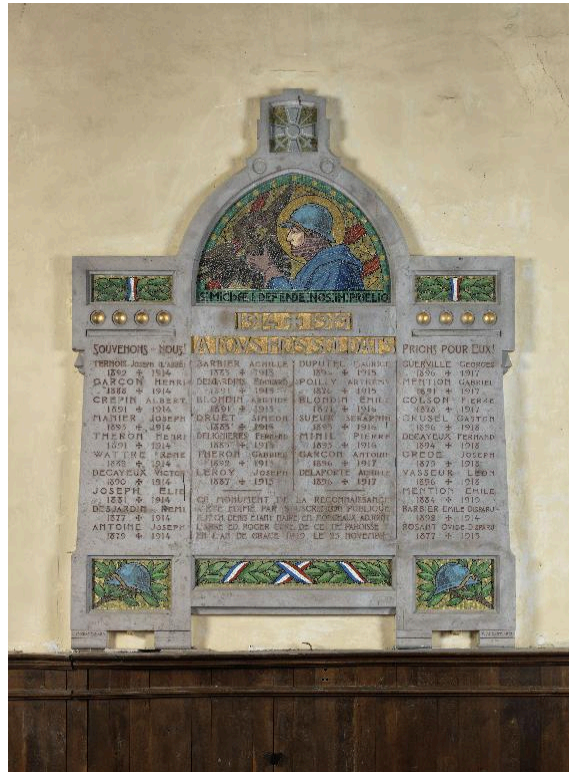 S. MICHAEL DEFENDE NOS IN PRÆLIO
A TOVS NOS SOLDATS
SOUVENONS - NOUS!
TERNOIS JOSEPH
1892 1914
GARÇON HENRI
1886 1914
CREPIN ALBERT
1891 1914
MANIER JOSEPH
1893 1914
THERON HENRI
1891 1914
WATTRE RENÉ
1889 1914
DECAYEUX VICTOR
1890 1914
JOSEPH ELIE
1881 1914
DESJARDIN REMI
1877 1914
ANTOINE JOSEPH
1879 1914
BARBIER ACHILLE
1883 1915
DESJARDINS EDOUARD
1891 1915
BLONDIN
1891 1915
DRUET SIMEON
1883 1915
DELIGNIERES FERNAND
1887 1915
THERON GABRIEL
1892 1915
LEROY JOSEPH
1887 1915
DUPUTEL
1894 1915
POILLY
BLONDIN EMILE
1871 1916
SUEUR
1895 1916
MINIL PIERRE
1893 1916
GARÇON ANTOINE
1896 1917
DELAPORTE ACHILLE
1896 1917
CE MONUMENT DE LA RECONNAISSANCE
A ÉTÉ ÉRIGÉ PAR SOUSCRIPTION PUBLIQUE
ETANT MAIRE
CURÉ DE CETTE PAROISSE
EN L'AN DE GRACE LE 23 NOVEMBRE
PRIONS POUR EUX!
GUERVILLE GEORGES
1896 1917
MENTION GABRIEL
1891 1917
COLSON PIERRE
1878 1917
CRUSEL GASTON
1898 1918
DECAYEUX FERNAND
1894 1918
CREDE JOSEPH
1879 1918
VASSEUR LÉON
1896 1918
MENTION EMILE
1884 1919
BARBIER EMILE DISPARU
1892 1914
ROSANT OVIDE DISPARU
1877 1915